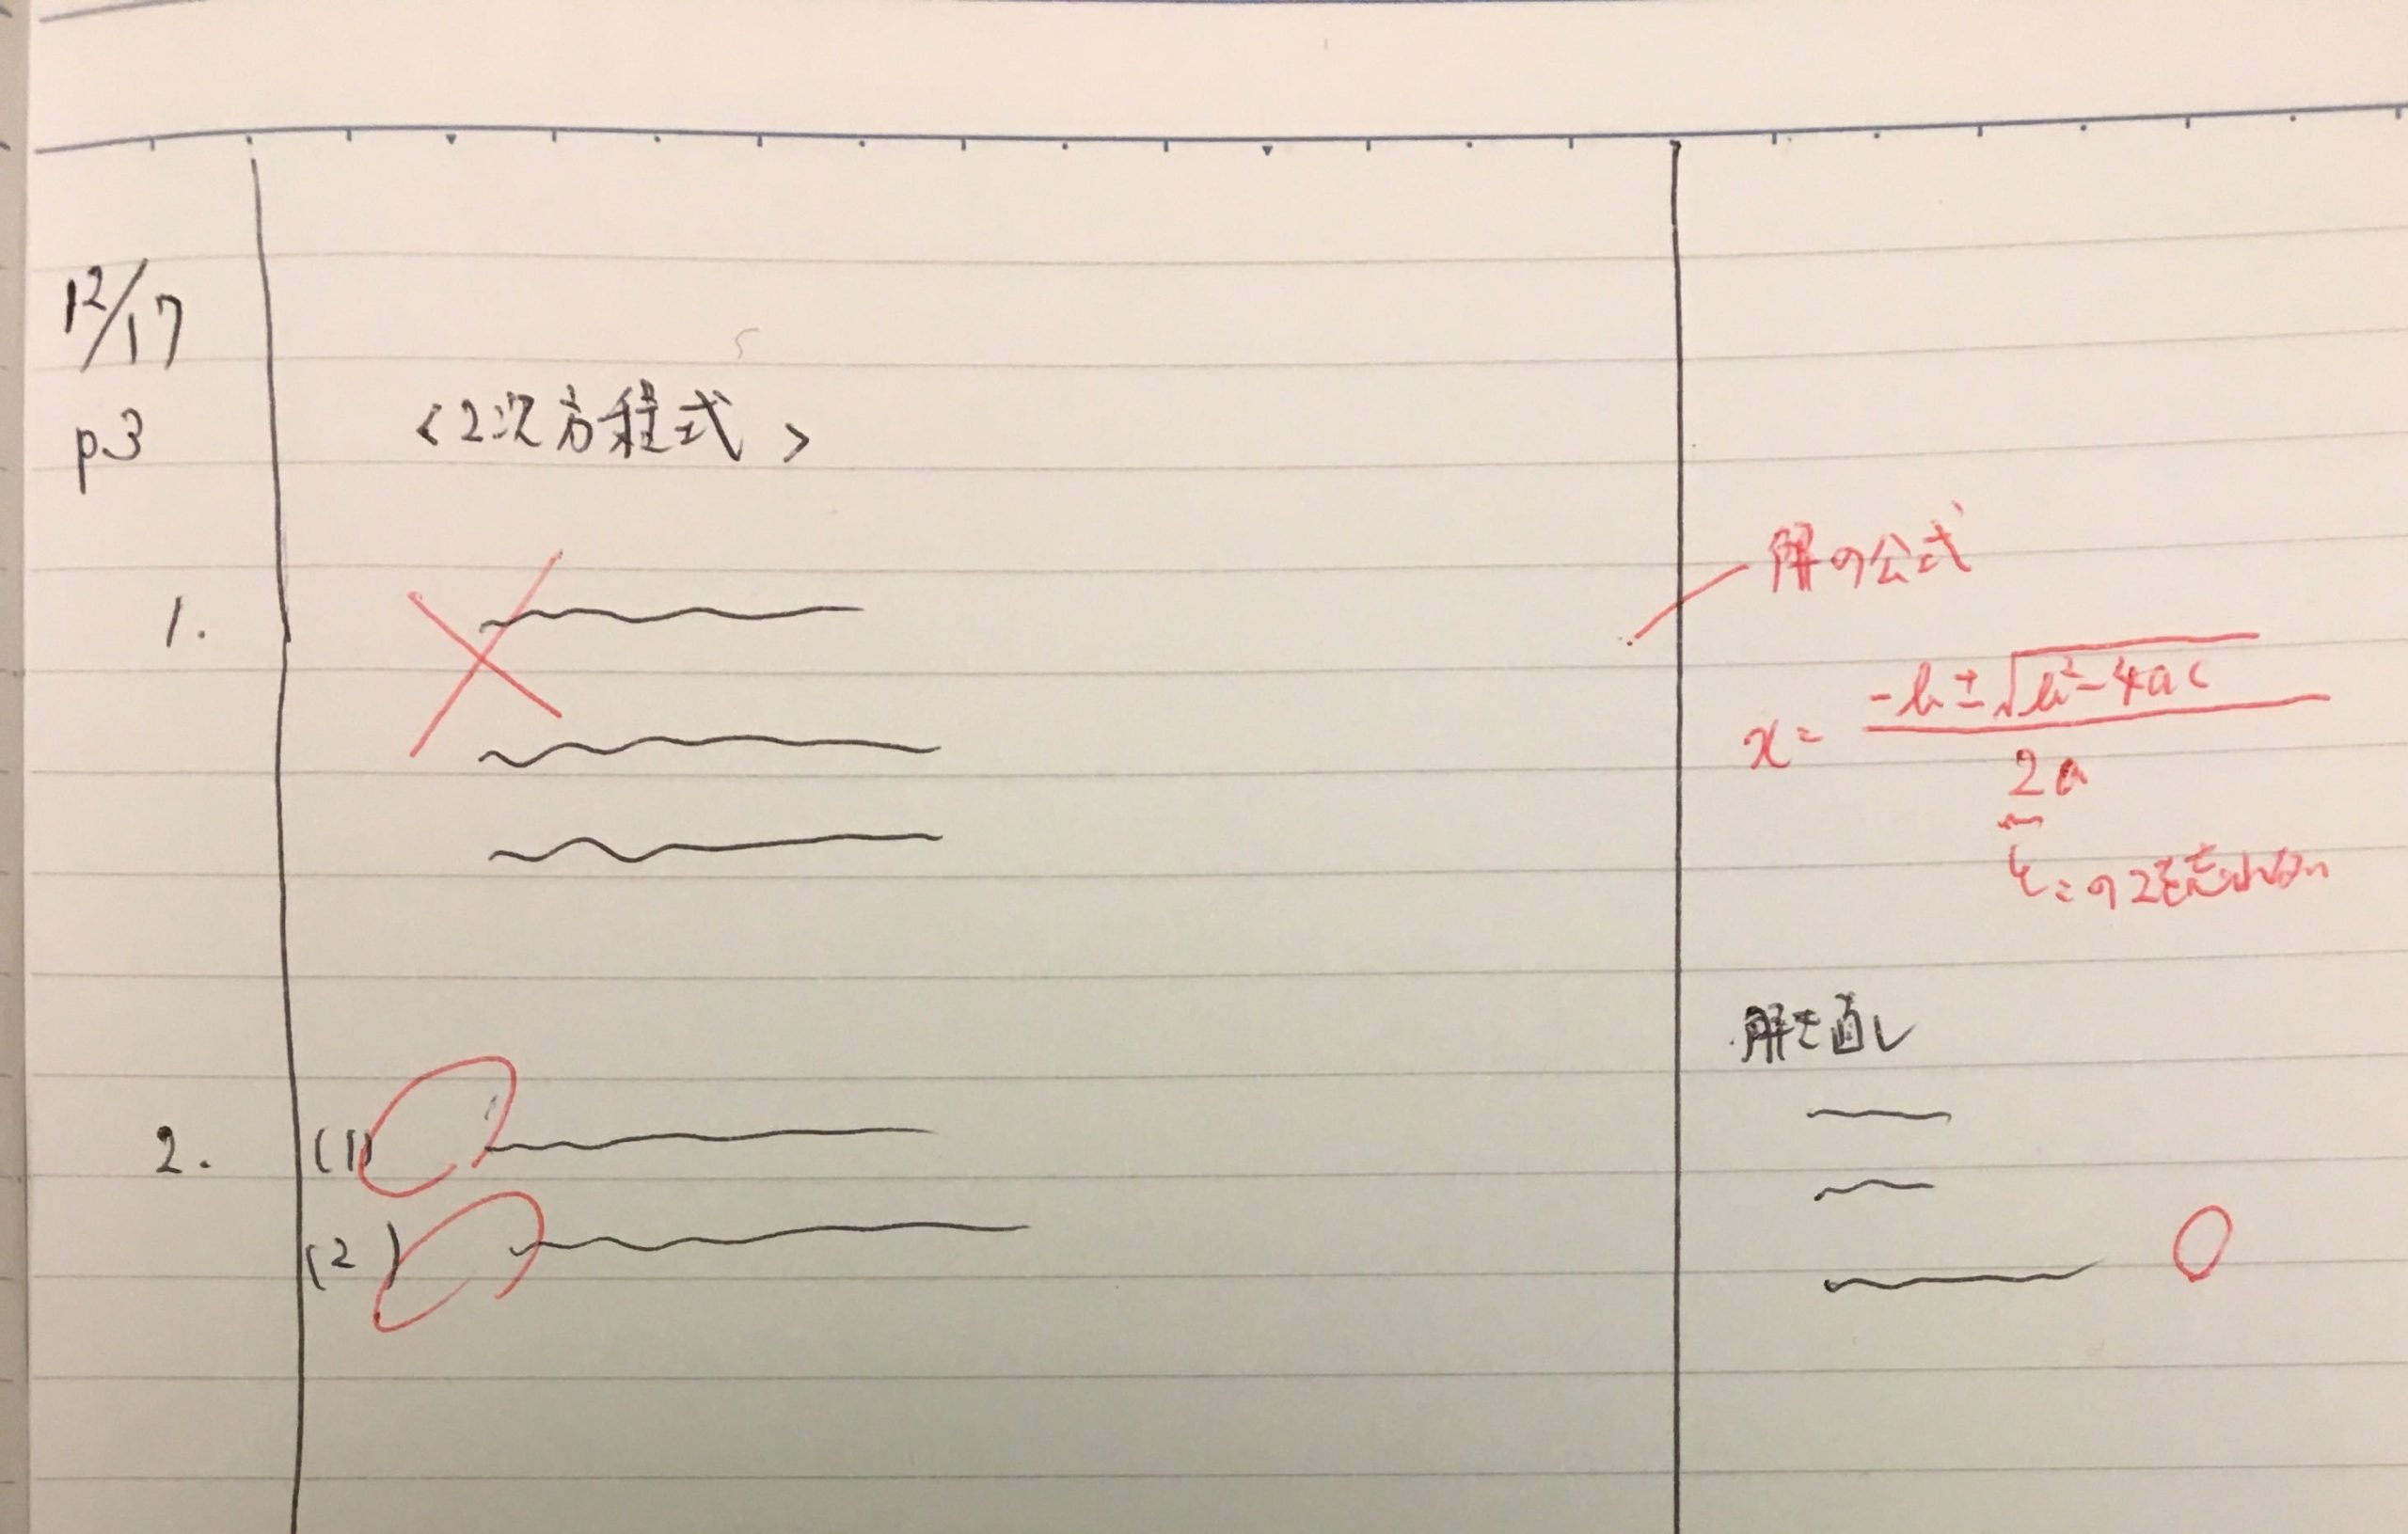 12/17
p.3
<2次方程式>
1.
解の公式
x = -b±√b²-4ac
2a
この2を忘れない
解き直し
2. (1)
(2)